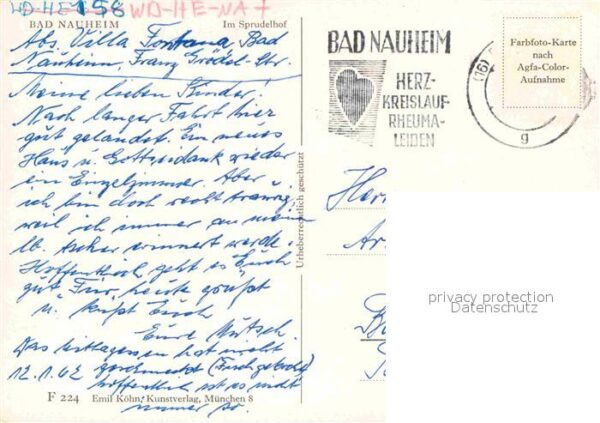 WD-HE 158 WD-HE-NA +
BAD NAUHEIM Im Sprudelhof
Abs. Villa Fontana, Bad
Nauheim, Franz Grödel-Str.
Meine lieben Kinder.
Nach langer Fahrt hier
gut gelandet. Ein neues
Haus u. Gottseidank wieder
ein Einzelzimmer. Aber
ich bin doch recht traurig,
weil ich immer an meinen
lb. erinnert werde.
Hoffentlich geht es Euch
gut. Für heute grüßt
u. küßt Euch
Eure
Das Mittagessen hat nicht
12.1.62 geschmeckt (Fisch gekocht)
hoffentlich ist es nicht
immer so.
F 224 Emil Köhn, Kunstverlag, München 8
Urheberrechtlich geschützt
BAD NAUHEIM
HERZ-
KREISLAUF-
RHEUMA-
LEIDEN
(16)
g
Farbfoto-Karte
nach
Agfa-Color-
Aufnahme
privacy protection
Datenschutz